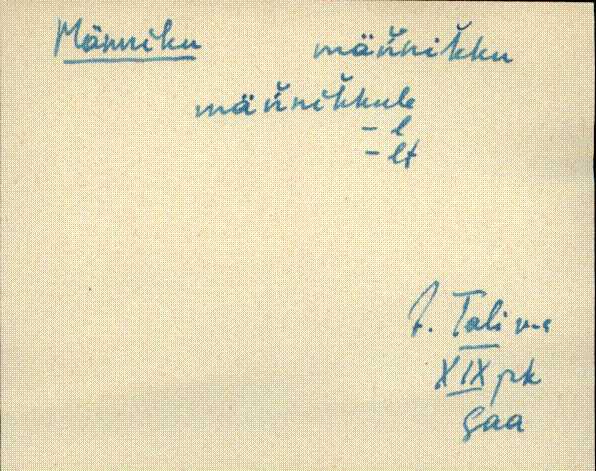 Männiku männ̆ik̆ku
männ̆ik̆kule
- l
- lt
J. Tali
XIX pk
Saa